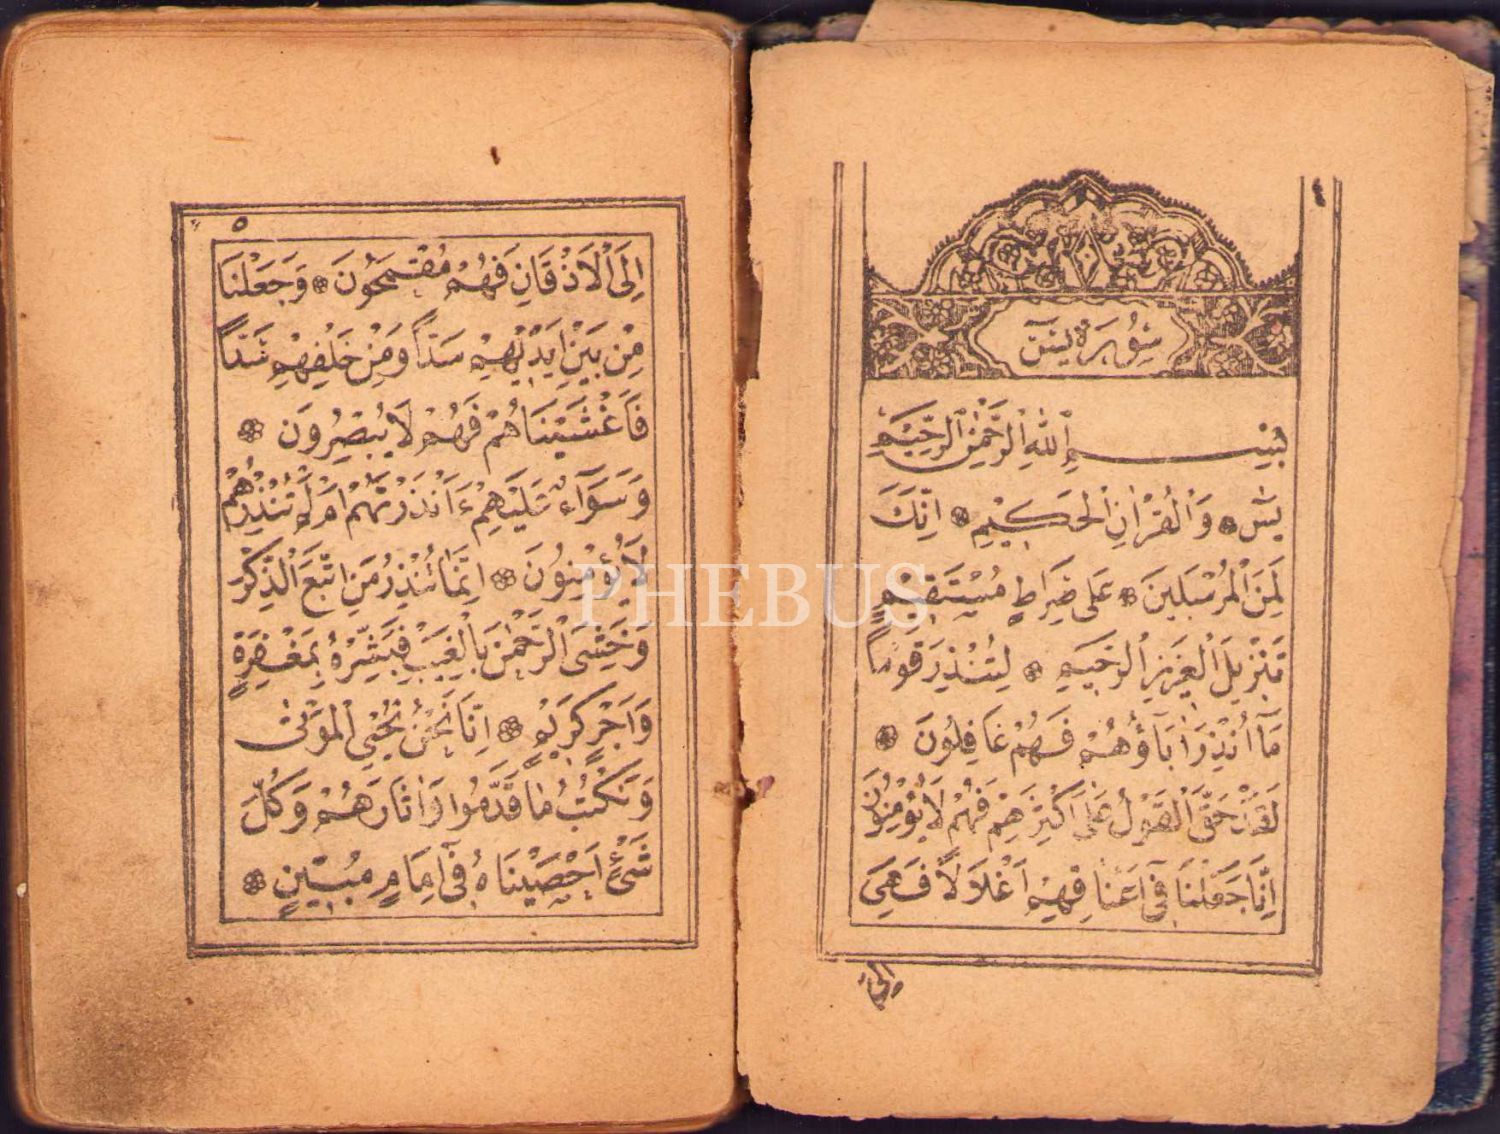 سُورَةُ يٰسٓ
بِسْمِ اللّٰهِ الرَّحْمٰنِ الرَّحِيمِ
يٰسٓ ۞ وَالْقُرْاٰنِ الْحَكِيمِ ۞ اِنَّكَ
لَمِنَ الْمُرْسَلِينَ ۞ عَلٰى صِرَاطٍ مُسْتَقِيمٍ
تَنْزِيلَ الْعَزِيزِ الرَّحِيمِ ۞ لِتُنْذِرَ قَوْمًا
مَآ اُنْذِرَ اٰبَآؤُهُمْ فَهُمْ غَافِلُونَ ۞
لَقَدْ حَقَّ الْقَوْلُ عَلٰٓى اَكْثَرِهِمْ فَهُمْ لَا يُؤْمِنُونَ
اِنَّا جَعَلْنَا فِىٓ اَعْنَاقِهِمْ اَغْلَالًا فَهِىَ
اِلَى
٥
اِلَى الْاَذْقَانِ فَهُمْ مُقْمَحُونَ ۞ وَجَعَلْنَا
مِنْ بَيْنِ اَيْدِيهِمْ سَدًّا وَمِنْ خَلْفِهِمْ سَدًّا
فَاَغْشَيْنَاهُمْ فَهُمْ لَا يُبْصِرُونَ ۞
وَسَوَآءٌ عَلَيْهِمْ ءَاَنْذَرْتَهُمْ اَمْ لَمْ تُنْذِرْهُمْ
لَا يُؤْمِنُونَ ۞ اِنَّمَا تُنْذِرُ مَنِ اتَّبَعَ الذِّكْرَ
وَخَشِىَ الرَّحْمٰنَ بِالْغَيْبِ فَبَشِّرْهُ بِمَغْفِرَةٍ
وَاَجْرٍ كَرِيمٍ ۞ اِنَّا نَحْنُ نُحْيِى الْمَوْتٰى
وَنَكْتُبُ مَا قَدَّمُوا وَاٰثَارَهُمْ وَكُلَّ
شَىْءٍ اَحْصَيْنَاهُ فِىٓ اِمَامٍ مُبِينٍ ۞
PHEBUS